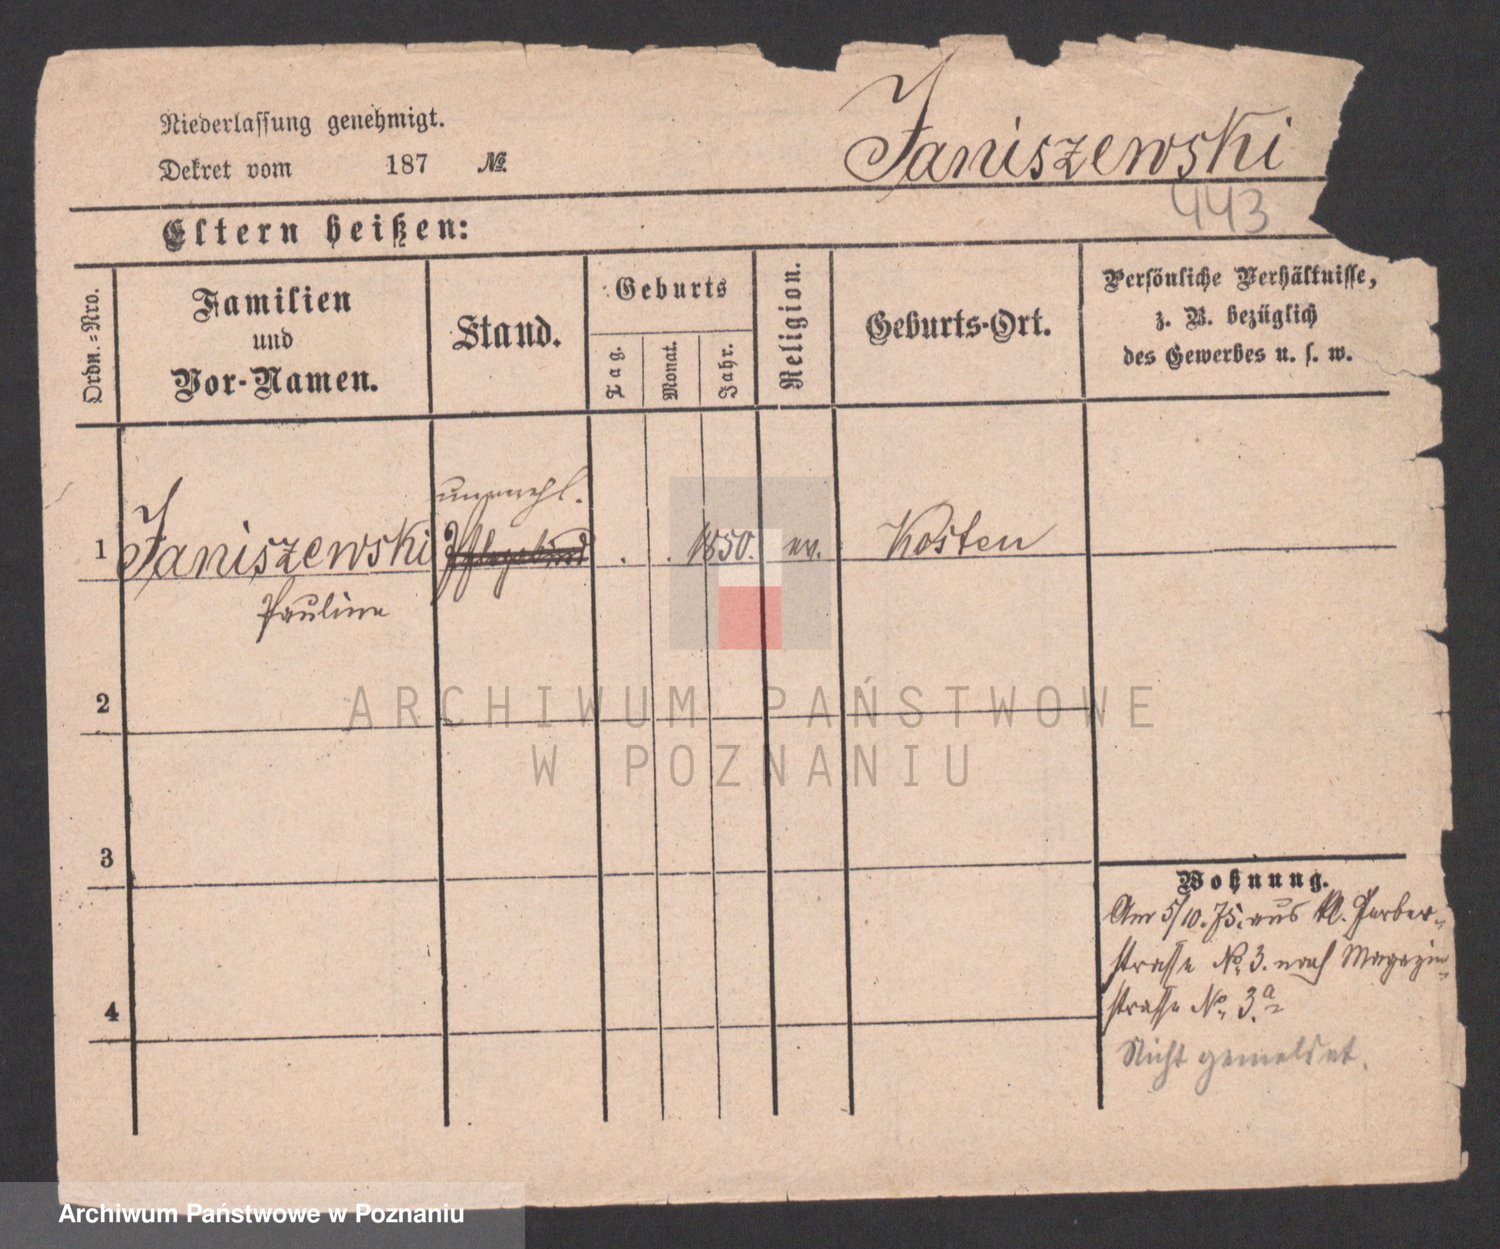 Niederlassung genehmigt.
Dekret vom 187 №
Janiszewski
443
Eltern heißen:
Ordn.=Nro.
Familien
und
Vor-Namen.
Stand.
Geburts
Tag.
Monat.
Jahr.
Religion.
Geburts-Ort.
Persönliche Verhältnisse,
z. B. bezüglich
des Gewerbes u. s. w.
unverehl.
1 Janiszewski . . 1850. ev. Kosten
Pauline
2
ARCHIWUM PAŃSTWOWE
W POZNANIU
3
Wohnung.
Am 5/10.75. aus kl. Gerber-
strasse No. 3. nach Magazin-
4
strasse No. 3.a
Nicht gemeldet.
Archiwum Państwowe w Poznaniu